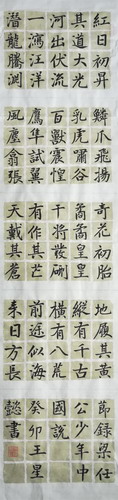 紅日初昇
其道大光
河出伏流
一瀉汪洋
潛龍騰淵
鱗爪飛揚
乳虎嘯谷
百獸震惶
鷹隼試翼
風塵翕張
奇花初胎
矞矞皇皇
干將發硎
有作其芒
天戴其蒼
地履其黃
縱有千古
橫有八荒
前途似海
來日方長
節録梁任
公少年中
國説
癸卯王星
懿書